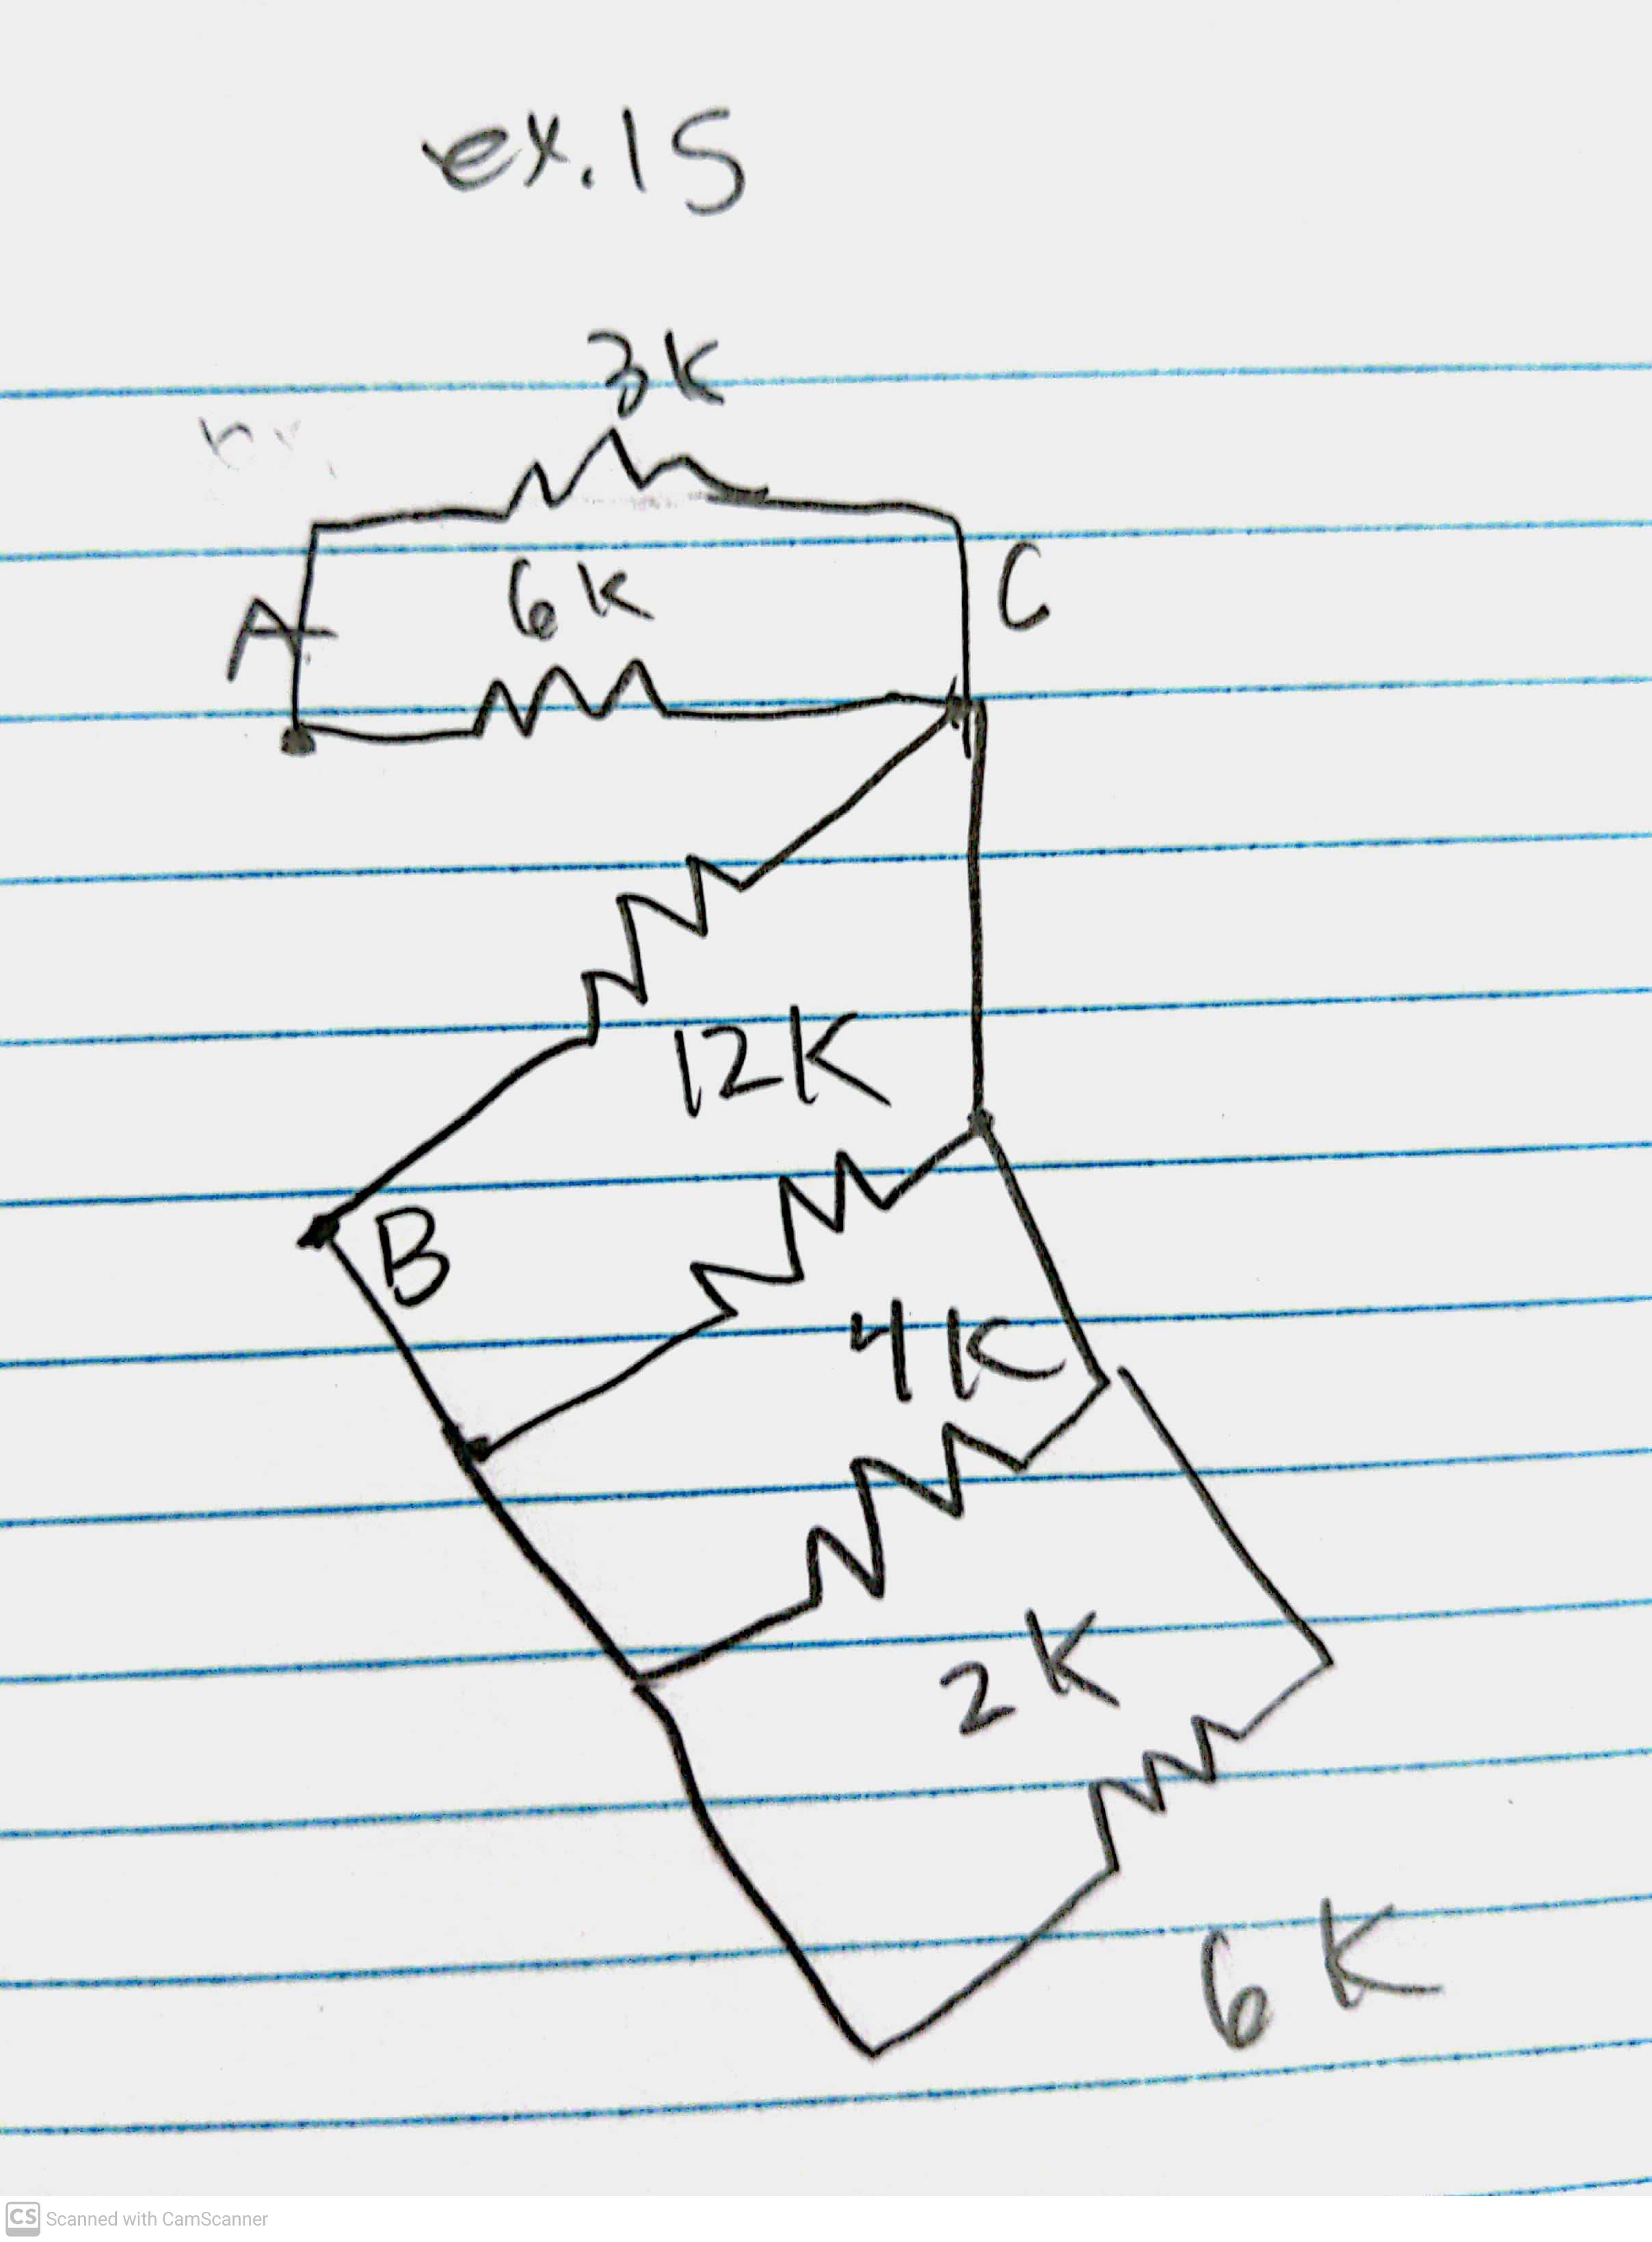 ex.15
3K
6K
A
C
12K
B
4K
2K
6K
CS Scanned with CamScanner